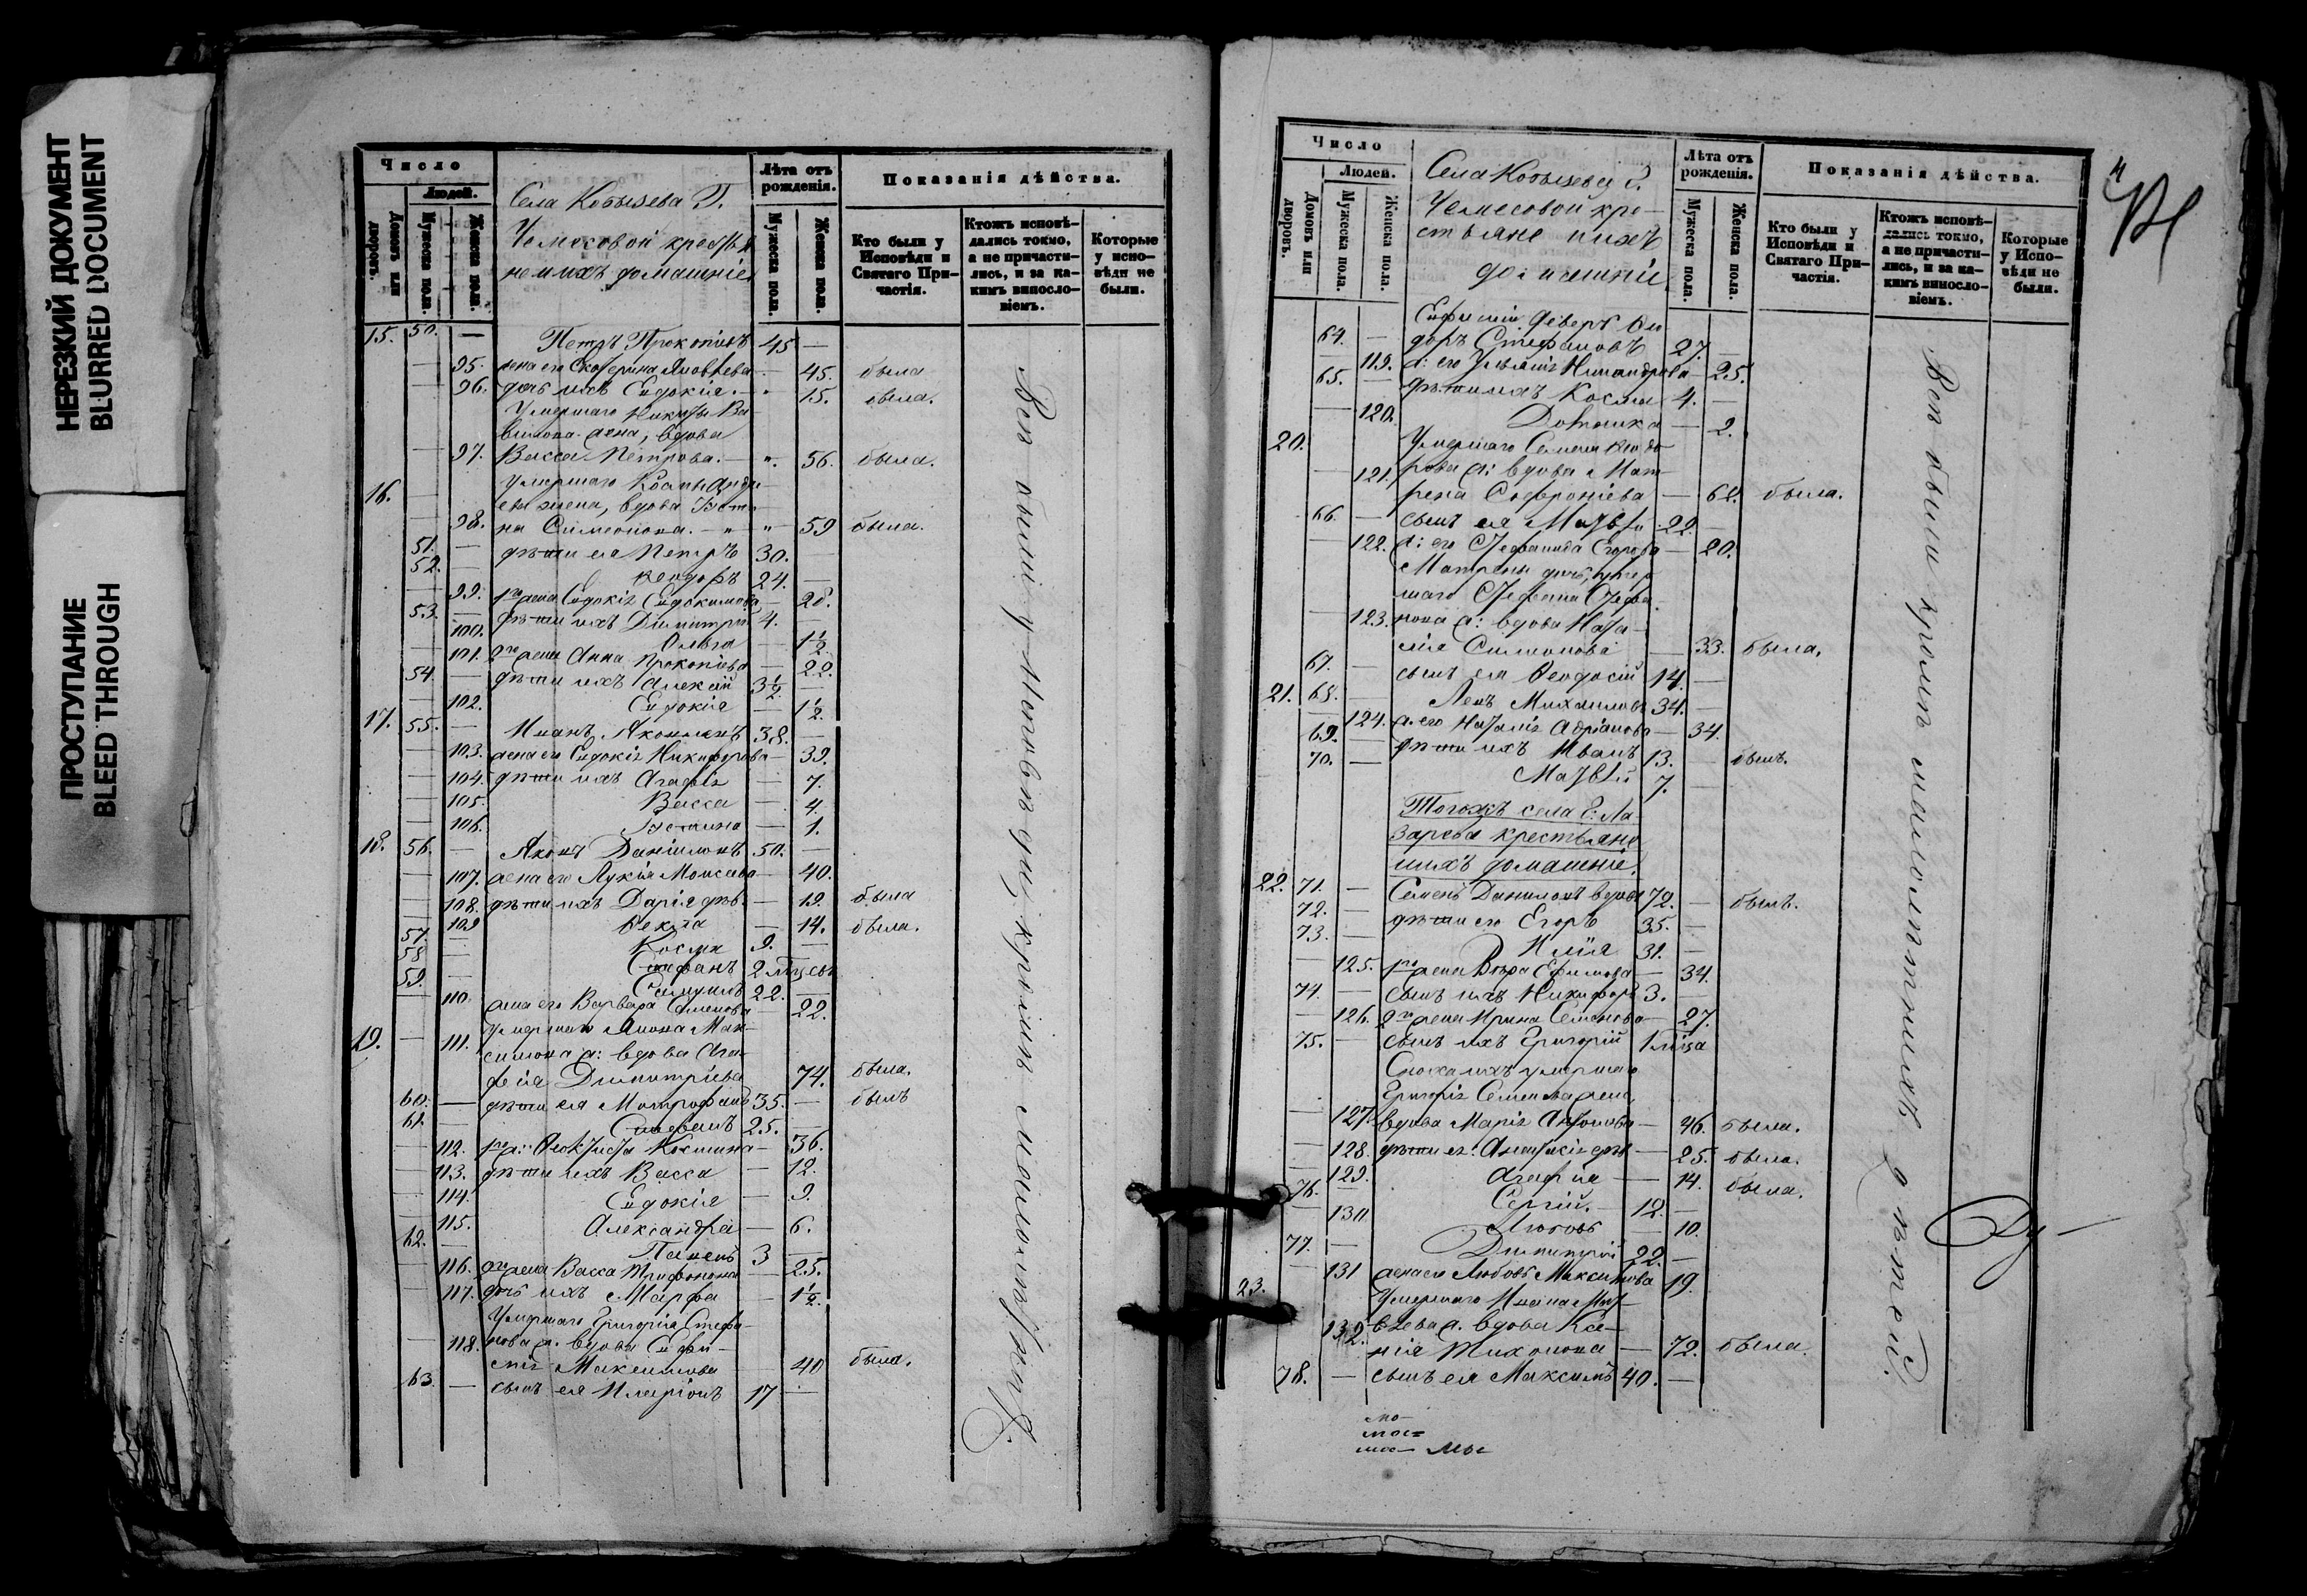 НЕРЕЗКИЙ ДОКУМЕНТ
BLURRED DOCUMENT
ПРОСТУПАНИЕ
BLEED THROUGH
Число
Людей.
Домовъ или дворовъ.
Мужеска пола.
Женска пола.
Села Кобызева Г.
Чемесовой крестья
не и ихъ домашніе
Лѣта отъ рожденія.
Мужеска пола.
Женска пола.
Показанія дѣйства.
Кто были у Исповѣди и Святаго Причастія.
Ктожъ исповѣдались токмо, а не причастились, и за какимъ винословіемъ.
Которые у исповѣди не были.
15. 50. — Петръ Прокопіевъ 45 —
— 95. жена его Екатерина Яковлева — 45. была
— 96. дочь ихъ Евдокія. — 15. была.
Умершаго Никиты Ва-
вилова жена, вдова
— 97. Васса Петрова. — 56. была.
16. Умершаго Косьмы Андре-
ева жена, вдова Усти-
— 98. на Симеонова. — 59 была.
51. — дѣти ея Петръ 30. —
52. — Ѳеодоръ 24. —
— 99. 1го жена Евдокія Евдокимова — 28.
53. — дѣти ихъ Димитрій 4. —
— 100. Ольга — 1½
— 101. 2го жена Анна Прокопіева — 22.
54. — дѣти ихъ Алексій 3½ —
— 102. Евдокія — 1½.
17. 55. — Иванъ Яковлевъ 38. —
— 103. жена его Евдокія Никифорова — 39.
— 104. дѣти ихъ Агафія — 7.
— 105. Васса — 4.
— 106. Устина — 1.
18. 56. — Яковъ Даніиловъ 50. —
— 107. жена его Лукія Моисеева — 40.
— 108. дѣти ихъ Дарія дѣв. — 19. была
— 109 Ѳекла — 14. была.
57. — Косма 9. —
58 — Стефанъ 2 мѣсец.
59. — Самуилъ 22. —
— 110. жена его Варвара Семенова — 22.
19. — 111. Умершаго Якова Мак-
симова ж: вдова Ага-
фія Димитріева 74. была.
60. — дѣти ея Митрофанъ 35. — былъ
61. — Стефанъ 25. —
— 112. 1го ж: Ѳеоктиста Космина — 36.
— 113. дѣти ихъ Васса — 12.
— 114. Евдокія — 9.
— 115. Александра — 6.
62. — Павелъ 3 —
— 116. 2го жена Васса Трифонова — 25.
— 117. дочь ихъ Марфа — 1½.
Умершаго Григорія Стефа-
— 118. нова ж. вдова Евфи-
мія Максимова 40 была.
63. — сынъ ея Иларіонъ 17 —
Всѣ были у Исповѣди кромѣ
Число
Людей.
Домовъ или дворовъ.
Мужеска пола.
Женска пола.
Села Кобызева Г.
Чемесовой кре-
стьяне и ихъ
домашніе
Лѣта отъ рожденія.
Мужеска пола.
Женска пола.
Показанія дѣйства.
Кто были у Исповѣди и Святаго Причастія.
Ктожъ исповѣдались токмо, а не причастились, и за какимъ винословіемъ.
Которые у Исповѣди не были.
Евфиміи деверь Ѳео-
64. — доръ Стефановъ 27. —
— 119. ж: его Ульянія Никандрова — 25.
65. — дѣти ихъ Косма 4. —
— 120. Домника — 2.
20. Умершаго Семена Ѳеодо-
— 121. рова ж: вдова Мат-
рена Софроніева — 62. была.
66. — сынъ ея Матвѣй 22. —
— 122. ж: его Стефанида Егорова — 20.
Матрены дочь, умер
шаго Стефана Стефа-
— 123. нова ж: вдова Ната-
лія Симеонова — 33. была.
67. — сынъ ея Ѳеодосій 14. —
21. 68. — Левъ Михаиловъ 34. —
— 124. ж. его Наталія Адріанова — 34.
69. — дѣти ихъ Иванъ 13. — былъ.
70. — Матвѣй 7. —
Тогожъ села Е: Ла-
зарева крестьяне
и ихъ домашніе.
22. 71. — Семенъ Даниловъ вдовъ 72. — былъ.
72. — дѣти его Егоръ 35. —
73. — Илія 31. —
— 125. 1го жена Вѣра Ефимова — 34.
74. — сынъ ихъ Никифоръ 3. —
— 126. 2го жена Ирина Семенова — 27.
75. — сынъ ихъ Григорій 1 мѣсца
Сноха ихъ умершаго
Григорія Семенова жена,
— 127. вдова Марія Антонова — 46. была.
— 128. дѣти ея: Анастасія дѣв — 25. была.
— 129. Агафія — 14. была.
76. — Сергій. 12. —
— 130 Любовь 10.
77. — Димитрій 22. —
— 131 жена его Любовь Максимова 19.
23. Умершаго Ивана Мат-
132. вѣева ж. вдова Ксе-
нія Тихонова — 72. была.
78. — сынъ ея Максимъ 40. —
Всѣ были кромѣ